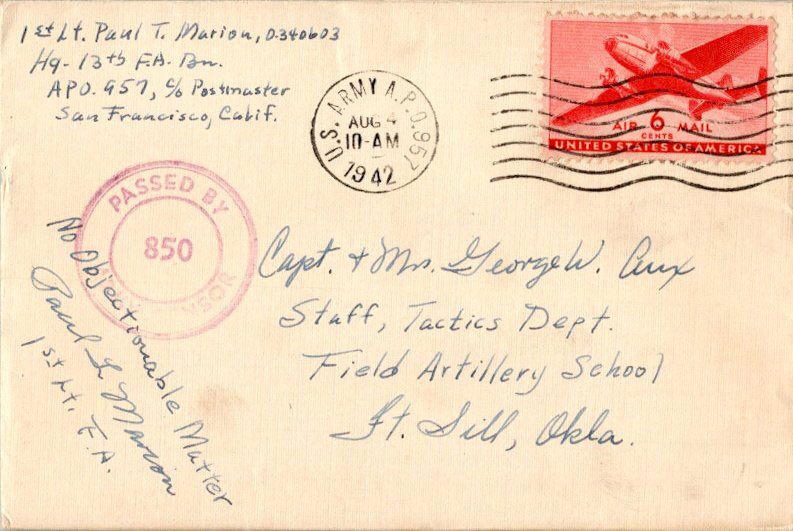 1st Lt. Paul T. Marion, O-340603
Hq- 13th F.A. Bn.
APO. 957, c/o Postmaster
San Francisco, Calif.
U.S. ARMY A.P.O. 957
AUG 4
10-AM
1942
AIR 6 MAIL
CENTS
UNITED STATES OF AMERICA
PASSED BY
850
ARMY CENSOR
No Objectionable Matter
Paul T. Marion
1st Lt. F.A.
Capt. + Mrs. George W. Aux
Staff, Tactics Dept.
Field Artillery School
Ft. Sill, Okla.